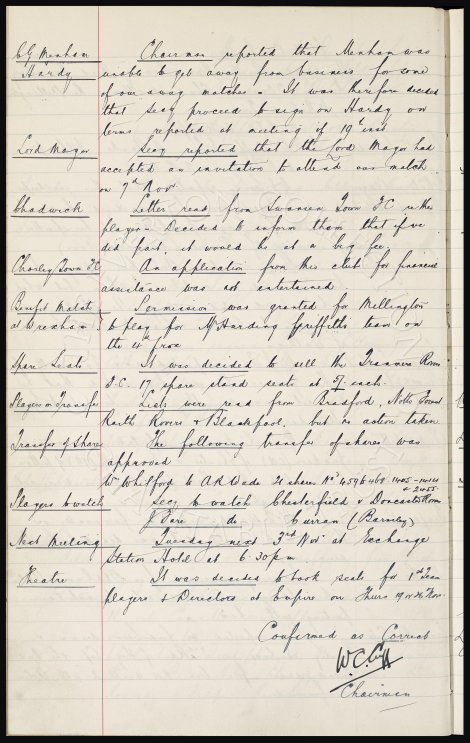 C G Menham Chairman reported that Menham was
Hardy unable to get away from business for some
of our away matches - It was therefore decided
that Secy proceed to sign on Hardy on
terms reported at meeting of 19th inst
Lord Mayor Secy reported that the Lord Mayor had
accepted an invitation to attend our match
on 7th Nov
Chadwick Letter read from Swansea Town F C re this
player - Decided to inform them that if we
did part it would be at a big fee.
Chorley Town F.C. An application from this club for financial
assistance was not entertained
Benefit Match Permission was granted for Mellington
at Wrexham to play for Mr Harding Griffiths team on
the 4th prox
Spare Seats It was decided to sell the Tranmere Rovers
F.C. 17 spare stand seats at 5/- each.
Players on Transfer Lists were read from Bradford, Notts Forest
Raith Rovers & Blackpool. but no action taken
Transfer of Shares The following transfer of shares was
approved
W Whitford to A R Wade 21 shares Nos 459/468 1405-1414
& 2455.
Players to watch Secy to watch Chesterfield v Doncaster Rovers
J Pare do Curran (Barnsley)
Next Meeting Tuesday next 3rd Nov at Exchange
Station Hotel at 6.30 pm
Theatre It was decided to book seats for 1st Team
players & Directors at Empire on Thurs 19 or 26 Nov.
Confirmed as Correct
W.C. Cuff
Chairman